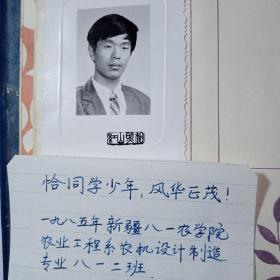 恰同学少年，风华正茂！
一九八五年新疆八一农学院
农业工程系农机设计制造
专业八一二班